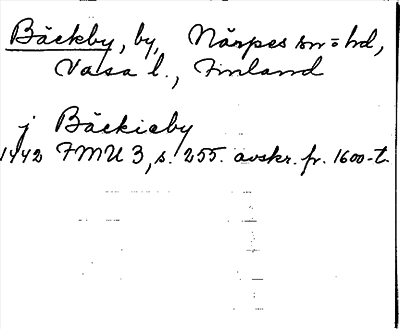 Bäckby, by, Närpes sn = hd,
Vasa l., Finland
j Bäckieby
1442 FMU 3, s. 255. avskr. fr. 1600-t.